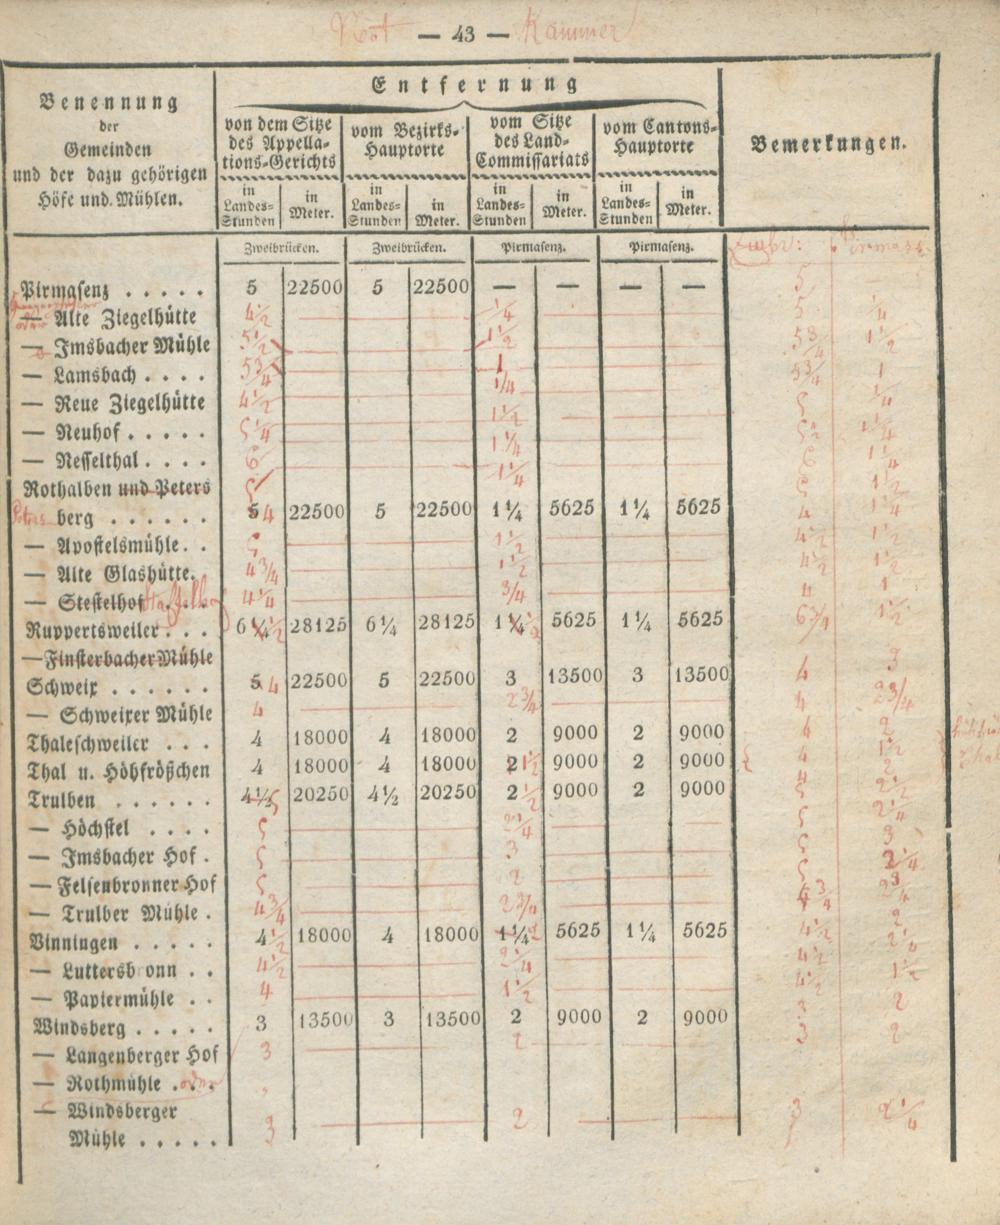 — 43 — Kammer
Benennung
der
Gemeinden
und der dazu gehörigen
Höfe und Mühlen.
Entfernung
von dem Sitze
des Appella-
tions-Gerichts
vom Bezirks-
Hauptorte
vom Sitze
des Land-
Commissariats
vom Cantons-
Hauptorte
Bemerkungen.
in
Landes-
Stunden
in
Meter.
in
Landes-
Stunden
in
Meter.
in
Landes-
Stunden
in
Meter.
in
Landes-
Stunden
in
Meter.
Zweibrücken. Zweibrücken. Pirmasenz. Pirmasenz.
Pirmasenz . . . . . 5 22500 5 22500 — — — — 5
— Alte Ziegelhütte 4½ ¼ 5 ¼
— Imsbacher Mühle 5½ 1½ 5¾ 1½
— Lamsbach . . . . 5¾ 1 5¾ 1
— Neue Ziegelhütte 4½ ¼ 5 ¼
— Neuhof . . . . . 5¼ 1½
— Nesselthal . . . . 6 1¼ 6 1¼
Rothalben und Peters 5 1¼ 5 1½
berg . . . . . . 5 4 22500 5 22500 1¼ 5625 1¼ 5625 4 1¼
— Apostelsmühle . . 5 1½ 4½ 1½
— Alte Glashütte. 4¾ 1½ 4½ 1½
— Stestelhof . . . . 4¼ ¾ 4 1
Ruppertsweiler . . . 6¼ 28125 6¼ 28125 1¼ 5625 1¼ 5625 6¾ 1½
— Finsterbacher Mühle
Schweix . . . . . . 5 4 22500 5 22500 3 13500 3 13500 4 3
— Schweixer Mühle 4 2¾ 4 2¾
Thaleschweiler . . . 4 18000 4 18000 2 9000 2 9000 4 2
Thal u. Höhfrößchen 4 18000 4 18000 2 1½ 9000 2 9000 4 1½
Trulben . . . . . . 4½ 5 20250 4½ 20250 2½ 9000 2 9000 5 2½
— Höchstel . . . . 5 2¼ 5 2¼
— Imsbacher Hof . 5 3 5 3
— Felsenbronner Hof 5 2 5 2¼
— Trulber Mühle . 4¾ 2¾ 4¾ 2¾
Vinningen . . . . . 4½ 18000 4 18000 1¼ 2 5625 1¼ 5625 4½ 2
— Luttersb onn . . 4½ 2¼ 4½ 2¼
— Papiermühle . . 4 1½ 4½ 1½
Windsberg . . . . . 3 13500 3 13500 2 9000 2 9000 3 2
— Langenberger Hof 3 2 3 2
— Rothmühle . oder
— Windsberger
Mühle . . . . . 3 2 3 2¼